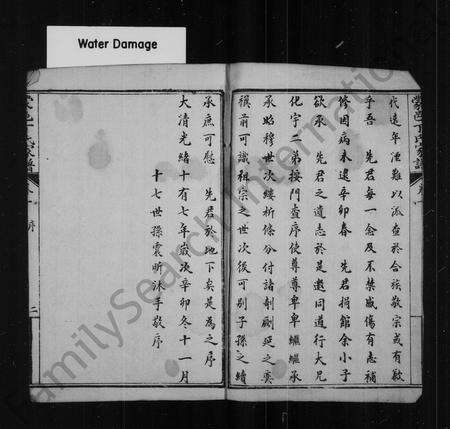 Water Damage
代遠年湮難以溯查於合族敬宗或有歉
乎吾　先君每一念及不禁感傷有志補
修因病未逮辛卯春　先君捐館余小子
欲承　先君之遺志於是邀同道行大兄
化宇二弟按門查序使尊尊卑卑繼繼承
承昭穆世次縷析條分付諸剞劂延之奕
禩前可識祖宗之世次後可別子孫之續
承庶可慰　先君於地下矣是為之序
大清光緒十有七年歲次辛卯冬十一月
十七世孫震昕沐手敬序
序
二
FamilySearch International